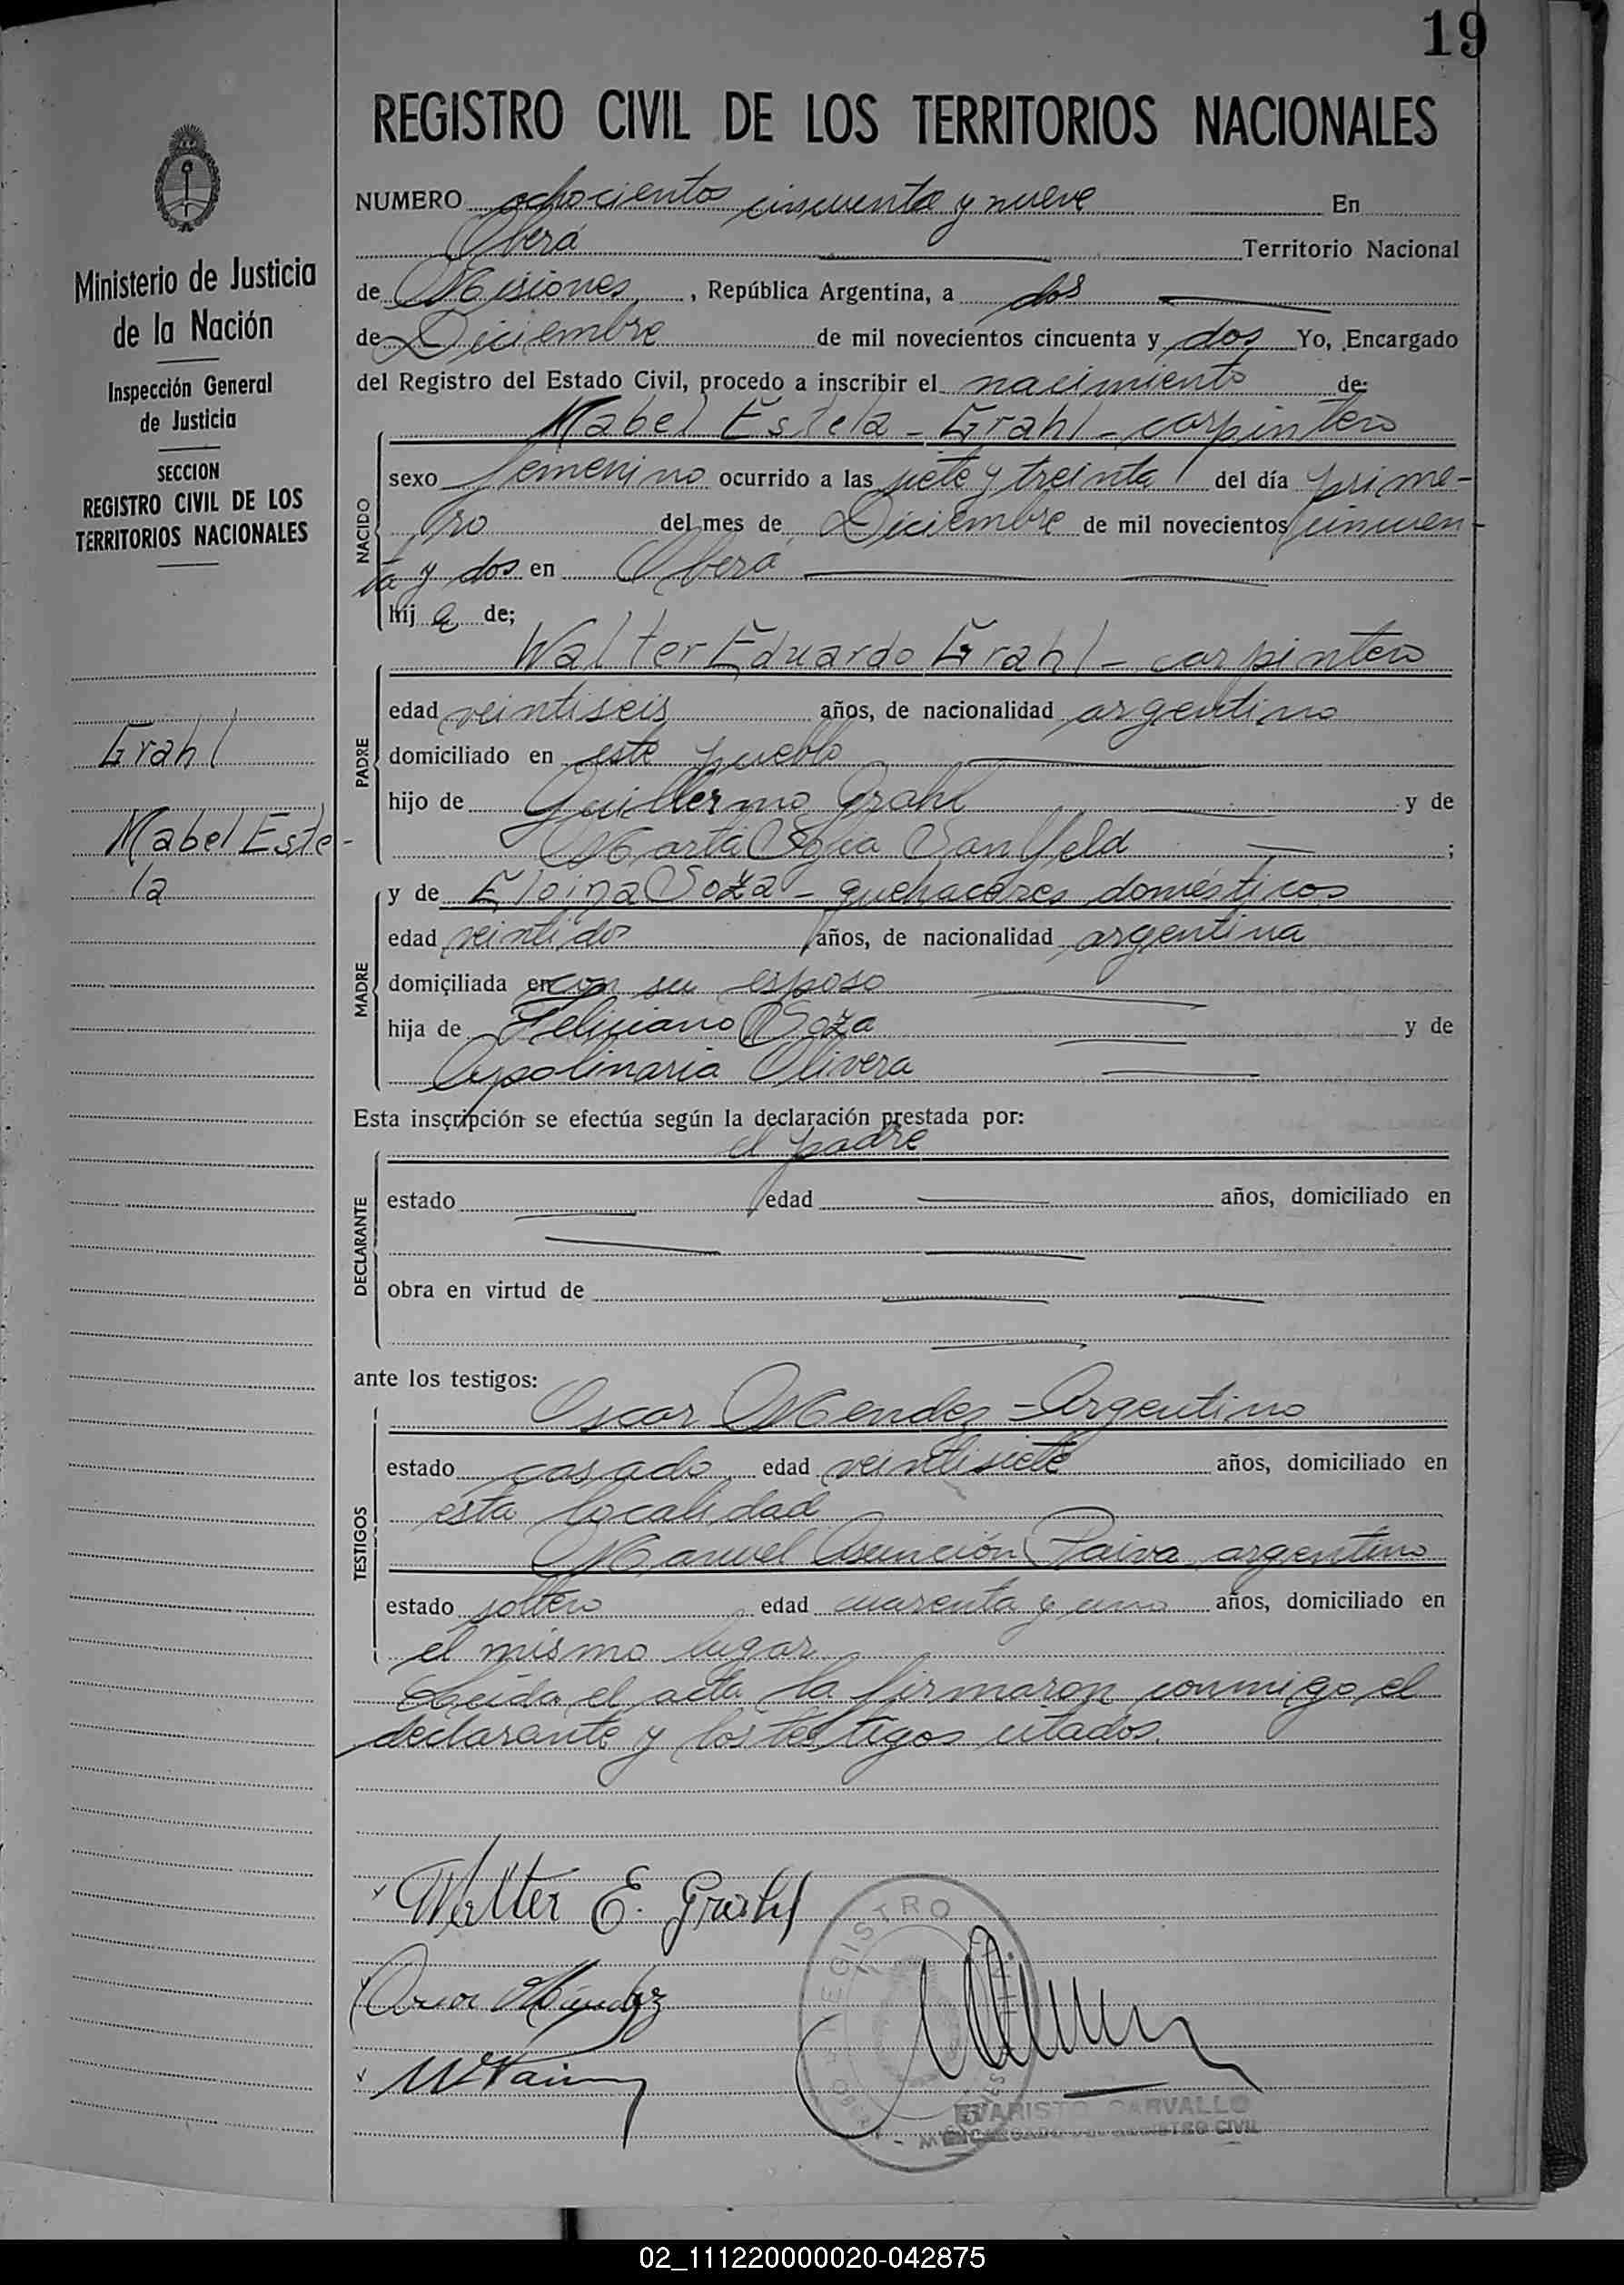 19
REGISTRO CIVIL DE LOS TERRITORIOS NACIONALES
Ministerio de Justicia
de la Nación
Inspección General
de Justicia
SECCION
REGISTRO CIVIL DE LOS
TERRITORIOS NACIONALES
Grahl
Mabel Este-
la
NUMERO ochocientos cincuenta y nueve En
Oberá Territorio Nacional
de Misiones, República Argentina, a dos
de Diciembre de mil novecientos cincuenta y dos Yo, Encargado
del Registro del Estado Civil, procedo a inscribir el nacimiento de:
NACIDO
Mabel Estela - Grahl - carpintero
sexo femenino ocurrido a las siete y treinta del día prime-
ro del mes de Diciembre de mil novecientos cincuen-
ta y dos en Oberá
hija de;
PADRE
Walter Eduardo Grahl - carpintero
edad veintiseis años, de nacionalidad argentino
domiciliado en este pueblo
hijo de Guillermo Grahl y de
Marta Sofia ;
MADRE
y de Eloina Soza - quehaceres domésticos
edad veintidos años, de nacionalidad argentina
domiciliada en con su esposo
hija de Feliciano Soza y de
Apolinaria Olivera
Esta inscripción se efectúa según la declaración prestada por:
DECLARANTE
el padre
estado edad años, domiciliado en
obra en virtud de
ante los testigos:
TESTIGOS
Oscar Mendez - Argentino
estado casado edad veintisiete años, domiciliado en
esta localidad
Manuel Asunción Paiva argentino
estado soltero edad cuarenta y uno años, domiciliado en
el mismo lugar
Leída el acta la firmaron conmigo el
declarante y los testigos citados.
Walter E. Grahl
Oscar Méndez
REGISTRO
EVARISTO CARVALLO
ENCARGADO DEL REGISTRO CIVIL
02_111220000020-042875